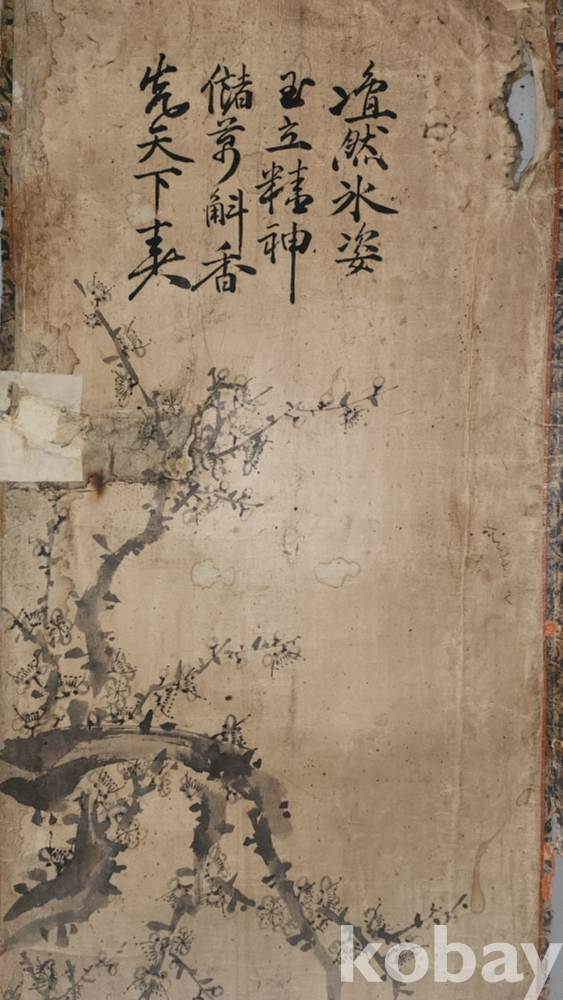 凒然氷姿
玉立精神
儲萬斛香
先天下春
kobay